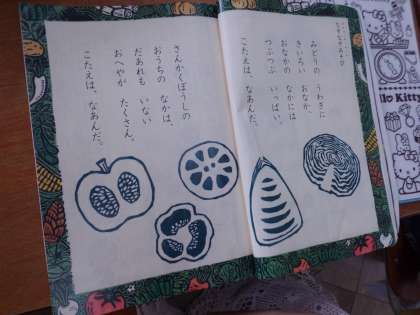 なぞなぞあそび
みどりの うわぎに
きいろい おなか、
おなかの なかには
つぶつぶ いっぱい。
こたえは、なあんだ。
さんかくぼうしの
おうちの なかは、
だあれも いない
おへやが たくさん。
こたえは、なあんだ。
Hello Kitty